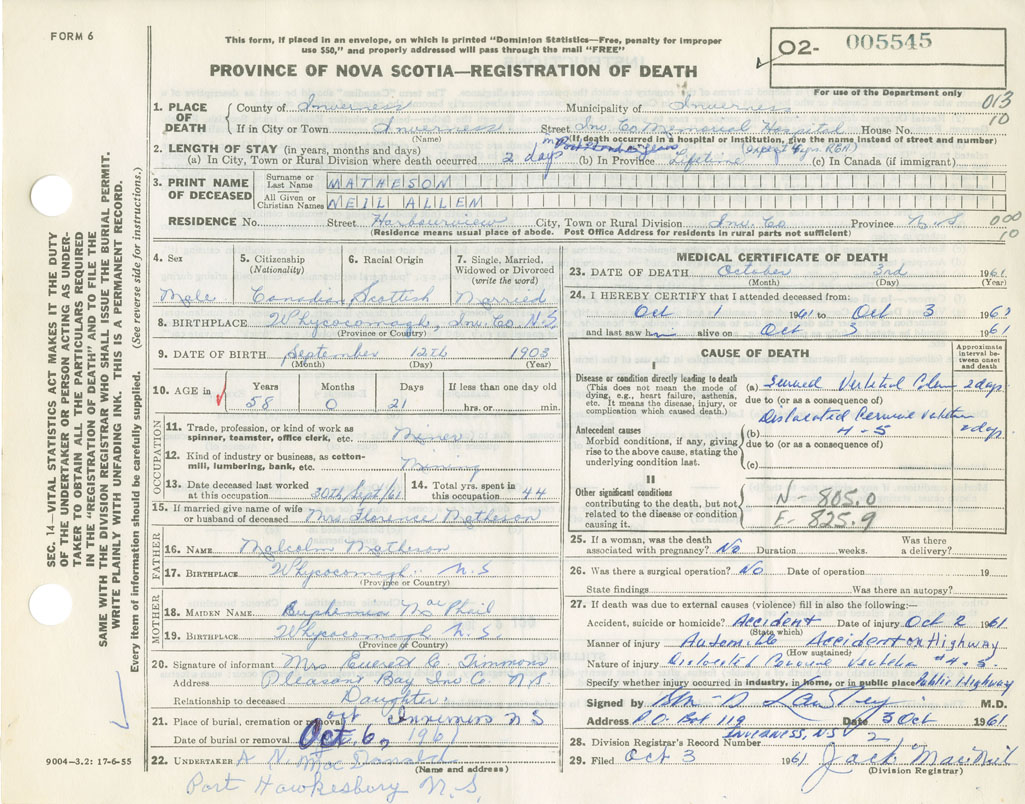 FORM 6
This form, if placed in an envelope, on which is printed "Dominion Statistics—Free, penalty for improper
use $50," and properly addressed will pass through the mail "FREE"
O2- 005545
PROVINCE OF NOVA SCOTIA—REGISTRATION OF DEATH
For use of the Department only
013
10
1. PLACE OF DEATH
County of Inverness Municipality of Inverness
If in City or Town Inverness Street Inv Co Memorial Hospital House No.
(Name) (If death occurred in a hospital or institution, give the name instead of street and number)
2. LENGTH OF STAY (in years, months and days)
(a) In City, Town or Rural Division where death occurred 2 days (b) In Province Lifetime (c) In Canada (if immigrant)
3. PRINT NAME OF DECEASED
Surname or Last Name MATHESON
All Given or Christian Names NEIL ALLEN
RESIDENCE No. Street Harbourview City, Town or Rural Division Inv. Co Province N.S
(Residence means usual place of abode. Post Office Address for residents in rural parts not sufficient)
000
10
4. Sex
Male
5. Citizenship
(Nationality)
Canadian
6. Racial Origin
Scottish
7. Single, Married,
Widowed or Divorced
(write the word)
Married
8. BIRTHPLACE Whycocomagh, Inv. Co N.S
(Province or Country)
9. DATE OF BIRTH September 12th 1903
(Month) (Day) (Year)
10. AGE in Years Months Days If less than one day old
58 0 21 hrs. or min.
OCCUPATION
11. Trade, profession, or kind of work as
spinner, teamster, office clerk, etc. Miner
12. Kind of industry or business, as cotton-
mill, lumbering, bank, etc. Mining
13. Date deceased last worked
at this occupation 30th/Sept/61
14. Total yrs. spent in
this occupation 44
15. If married give name of wife
or husband of deceased Mrs Florence Matheson
FATHER
16. NAME Malcolm Matheson
17. BIRTHPLACE Whycocomagh N.S
(Province or Country)
MOTHER
18. MAIDEN NAME Euphemia MacPhail
19. BIRTHPLACE Whycocomagh N.S.
(Province or Country)
20. Signature of informant Mrs Everett C. Timmons
Address Pleasant Bay Inv Co. N.S.
Relationship to deceased Daughter
21. Place of burial, cremation or removal Inverness N S
Date of burial or removal Oct 6, 1961
22. UNDERTAKER A N. MacDonald
(Name and address)
Port Hawkesbury N.S.
9004—3.2: 17-6-55
MEDICAL CERTIFICATE OF DEATH
23. DATE OF DEATH October 3rd 1961
(Month) (Day) (Year)
24. I HEREBY CERTIFY that I attended deceased from:
Oct 1 1961 to Oct 3 1961
and last saw him alive on Oct 3 1961
CAUSE OF DEATH
Approximate interval between onset and death
I
Disease or condition directly leading to death
(This does not mean the mode of
dying, e.g., heart failure, asthenia,
etc. It means the disease, injury, or
complication which caused death.)
(a) 2 days
due to (or as a consequence of)
Dislocated Cervical Vertebra
Antecedent causes
Morbid conditions, if any, giving
rise to the above cause, stating the
underlying condition last.
(b) 4-5 2 days
due to (or as a consequence of)
(c)
II
Other significant conditions
contributing to the death, but not
related to the disease or condition
causing it.
N - 805.0
E - 825.9
25. If a woman, was the death
associated with pregnancy? No Duration weeks. Was there
a delivery?
26. Was there a surgical operation? No Date of operation 19
State findings Was there an autopsy?
27. If death was due to external causes (violence) fill in also the following:—
Accident, suicide or homicide? Accident Date of injury Oct 2 1961
(State which)
Manner of injury Automobile Accident on Highway
(How sustained)
Nature of injury Dislocated Cervical Vertebra #4-5.
Specify whether injury occurred in industry, in home, or in public place Public Highway
Signed by M.D.
Address P.O. Box 119 Date 3 Oct 1961
Inverness, NS
28. Division Registrar's Record Number 2
29. Filed Oct 3 1961 Jack MacNeil
(Division Registrar)
SEC. 14—VITAL STATISTICS ACT MAKES IT THE DUTY
OF THE UNDERTAKER OR PERSON ACTING AS UNDER-
TAKER TO OBTAIN ALL THE PARTICULARS REQUIRED
IN THE "REGISTRATION OF DEATH" AND TO FILE THE
SAME WITH THE DIVISION REGISTRAR WHO SHALL ISSUE THE BURIAL PERMIT.
WRITE PLAINLY WITH UNFADING INK. THIS IS A PERMANENT RECORD.
Every item of information should be carefully supplied. (See reverse side for instructions.)